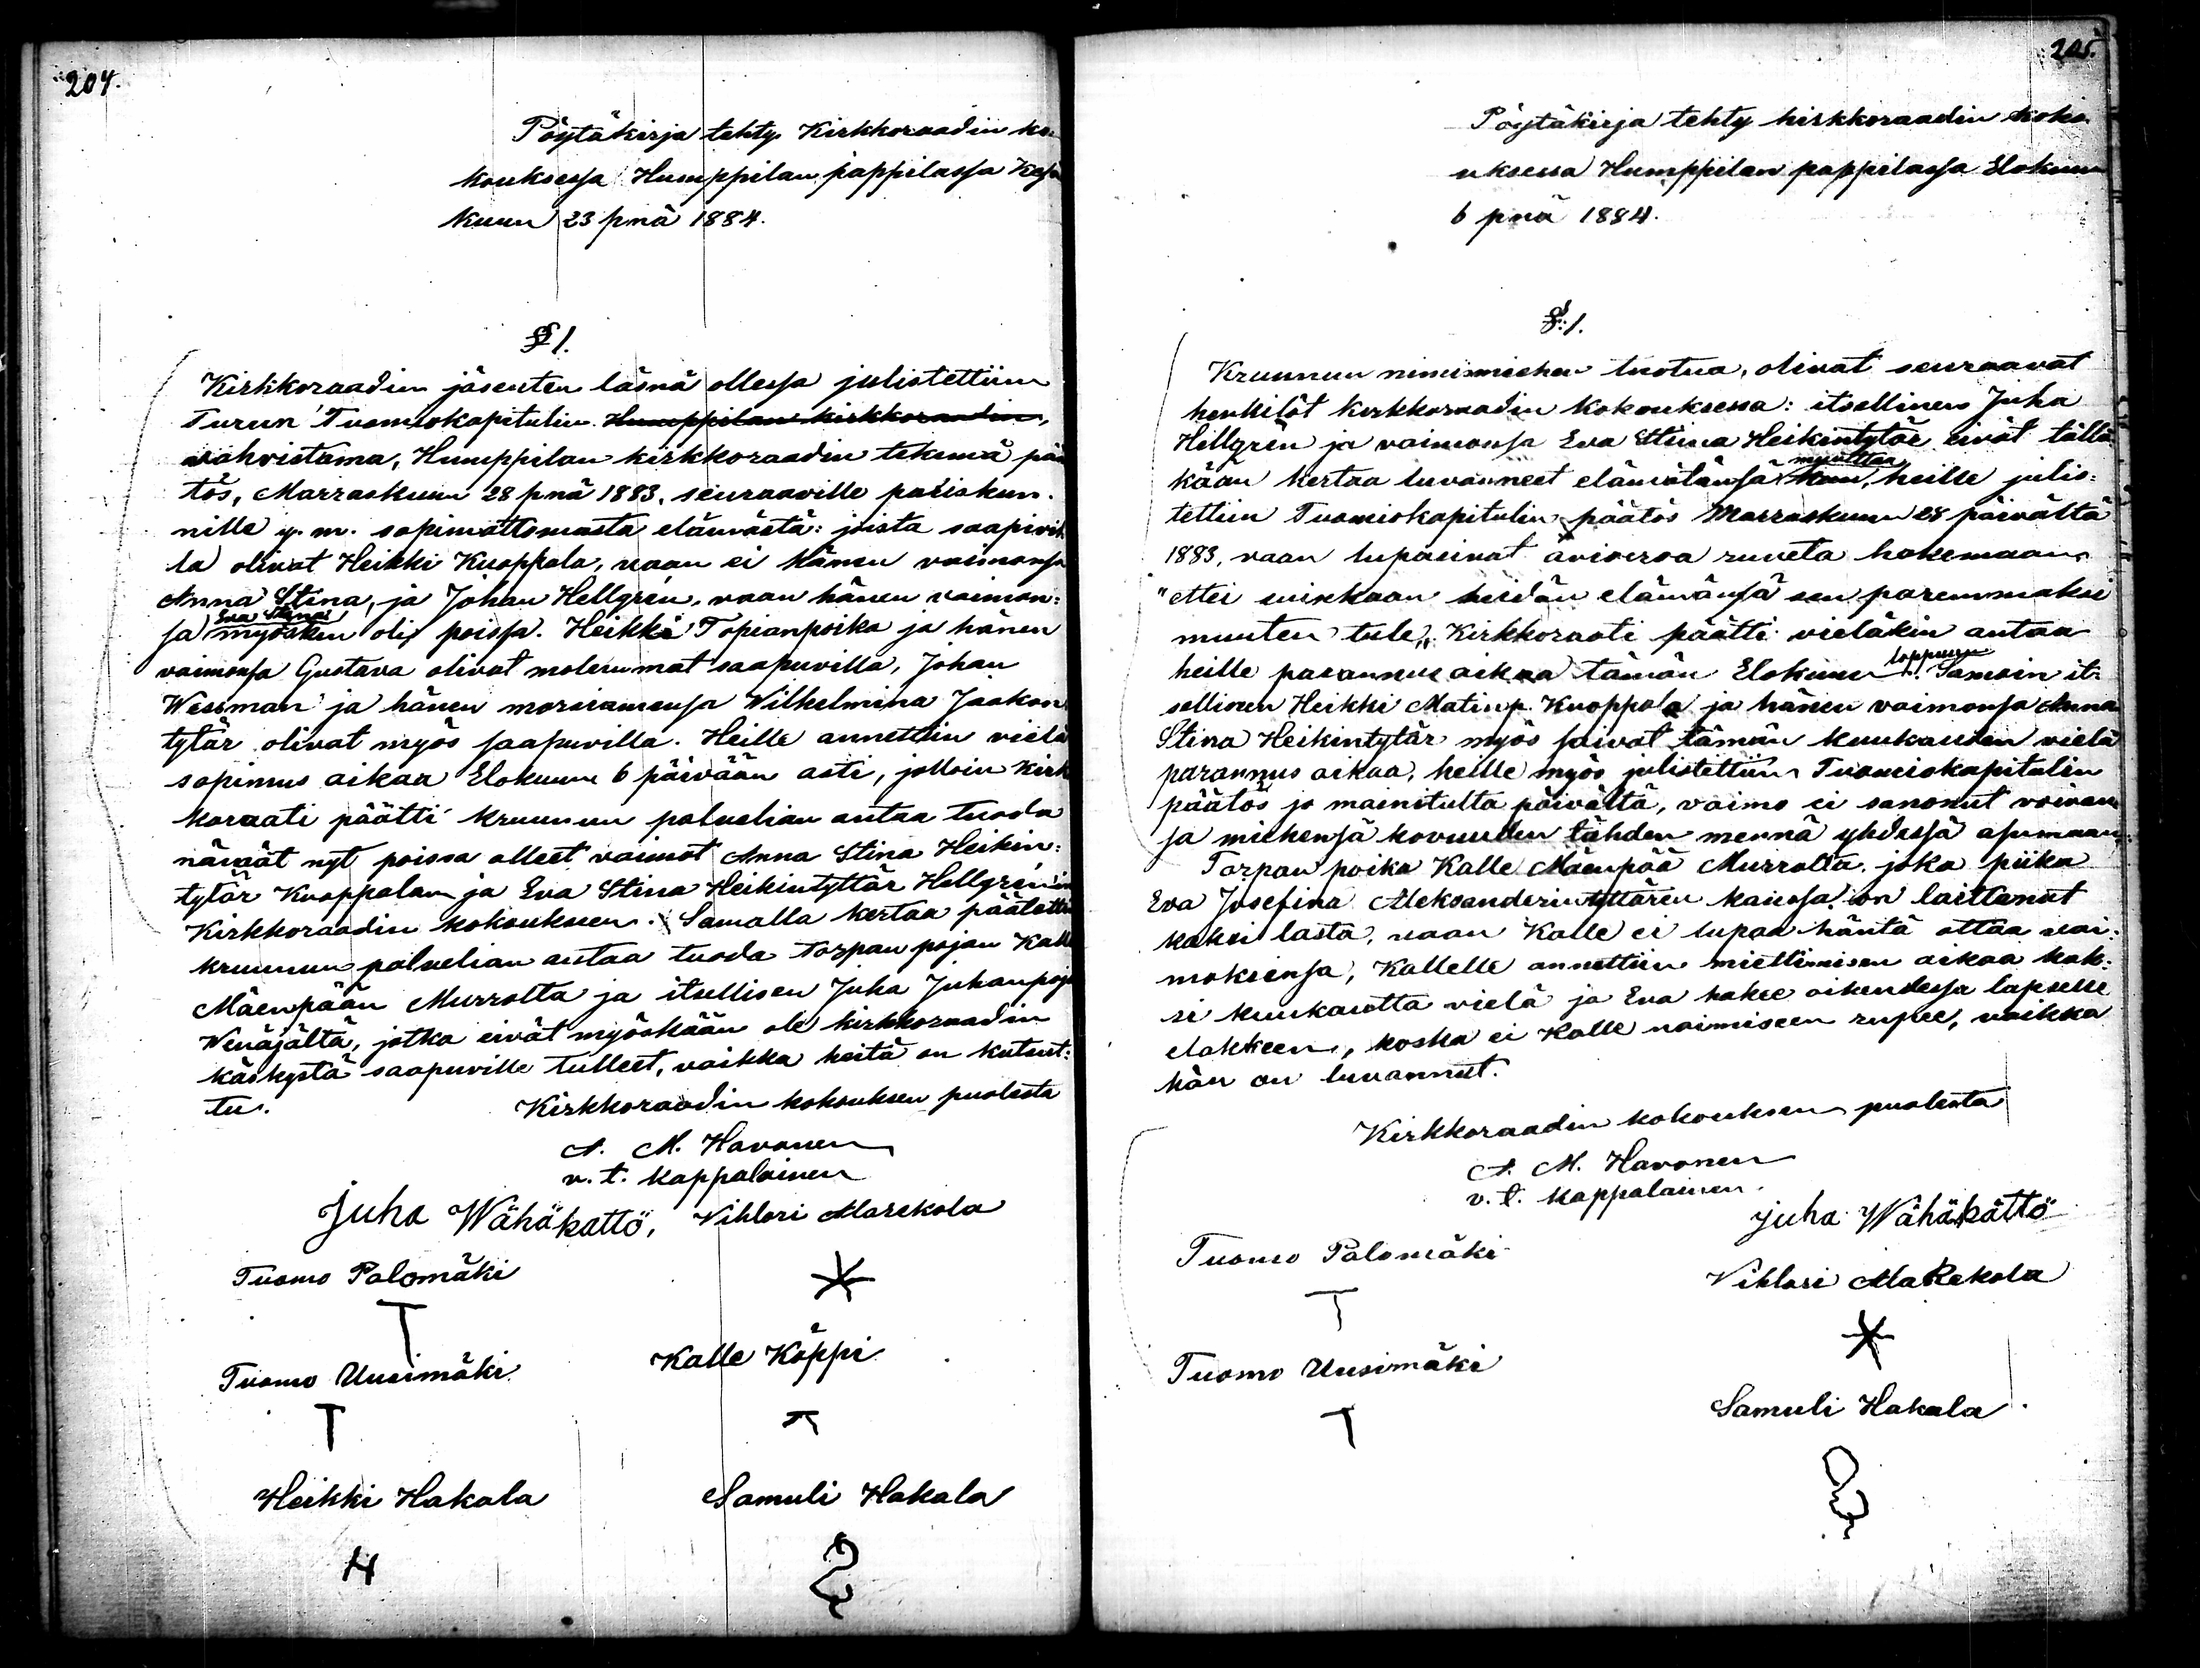 204.
Pöytäkirja tehty Kirkkoraadin ko-
kouksessa Humppilan pappilassa Kesä
kuun 23 pnä 1884.
§ 1.
Kirkkoraadin jäsenten läsnä ollessa julistettiin
Turun Tuomiokapitulin Humppilan kirkkoraadin,
vahvistama, Humppilan kirkkoraadin tekemä pää
tös, Marraskuun 28 pnä 1883, seuraaville pariskun-
nille y. m. sopimattomasta elämästä: joista saapuvil-
la olivat Heikki Kuoppala, vaan ei hänen vaimonsa
Anna Stina, ja Johan Hellgrén, vaan hänen vaimon:
Eva Stina
sa myöskin oli poissa. Heikki Topianpoika ja hänen
vaimonsa Gustava olivat molemmat saapuvilla, Johan
Wessman ja hänen morsiamensa Wilhelmina Jaakon
tytär olivat myös saapuvilla. Heille annettiin vielä
sopimus aikaa Elokuun 6 päivään asti, jolloin Kirk
koraati päätti kruunun palvelian antaa tuoda
nämät nyt poissa olleet vaimot Anna Stina Heikin:
tytär Kuoppalan ja Eva Stina Heikintyttär Hellgrénin
Kirkkoraadin kokoukseen. Samalla kertaa päätettiin
kruunun palvelian antaa tuoda torpan pojan Kalle
Mäenpään Murrolta ja itsellisen Juha Juhanpoja
Wenäjältä, jotka eivät myöskään ole kirkkoraadin
käskystä saapuville tulleet, vaikka heitä on kutsut:
tu.
Kirkkoraadin kokouksen puolesta
A. M. Havonen
v. t. kappalainen
Juha Wähäkättö, Vihtori Marekola
Tuomo Palomäki
Tuomo Uusimäki
Kalle Köppi
Heikki Hakala
Samuli Hakala
H
205.
Pöytäkirja tehty kirkkoraadin koko
uksessa Humppilan pappilassa Elokuun
6 pnä 1884.
§. 1.
Kruunun nimismiehen tuotua, olivat seuraavat
henkilöt kirkkoraadin kokouksessa: itsellinen Juha
Hellgrén ja vaimonsa Eva Stiina Heikintytär eivät tällä
muuttaa
kään kertaa luvanneet elämätänsä heille julis:
tettiin Tuomiokapitulin päätös Marraskuun 28 päivältä
1883, vaan lupasivat avioeroa ruveta hakemaan,
"ettei heidän elämänsä sen paremmaksi
muuten tule". Kirkkoraati päätti vieläkin antaa
loppuun
heille parannus aikaa tämän Elokuun. Samoin it-
sellinen Heikki Matinp. Kuoppala ja hänen vaimonsa Anna
Stina Heikintytär myös saivat tämän kuukauden vielä
parannus aikaa, heille myös julistettiin Tuomiokapitulin
päätös jo mainitulta päivältä, vaimo ei sanonut voivan
sa miehensä kovuuden tähden mennä yhdessä asumaan.
Torpan poika Kalle Mäenpää Murrolta, joka piika
Eva Josefina Aleksanderintyttären kanssa on laittanut
kaksi lasta, vaan Kalle ei lupaa häntä ottaa vai:
moksensa, Kallelle annettiin miettimisen aikaa kak:
si kuukautta vielä ja Eva hakee oikeudessa lapselle
elakkeen, koska ei Kalle naimiseen rupee, vaikka
hän on luvannut.
Kirkkoraadin kokouksen puolesta
A. M. Havonen
v. t. kappalainen.
Juha Wähäkättö
Tuomo Palomäki
Vihtori Marekola
Tuomo Uusimäki
Samuli Hakala